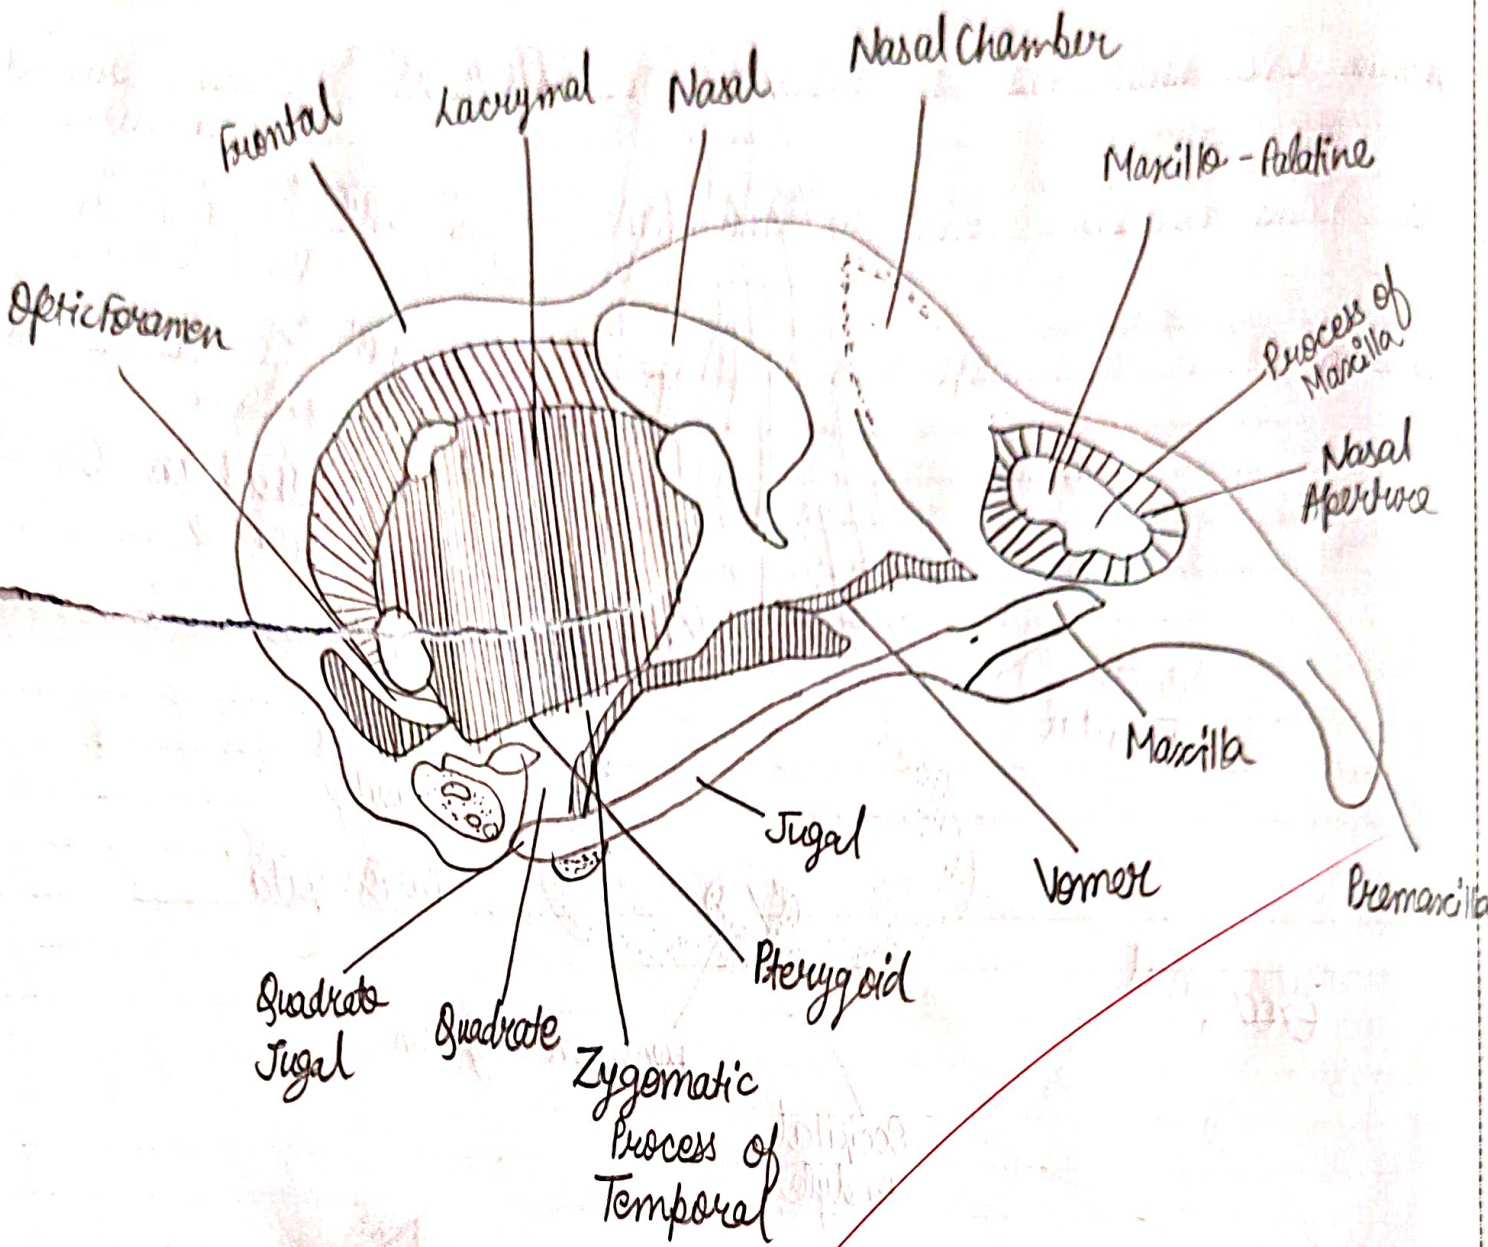 Nasal Chamber
Lacrymal
Nasal
Frontal
Maxillo - Palatine
Optic Foramen
Process of
Maxilla
Nasal
Aperture
Maxilla
Jugal
Vomer
Premaxilla
Pterygoid
Quadrato
Jugal
Quadrate
Zygomatic
Process of
Temporal